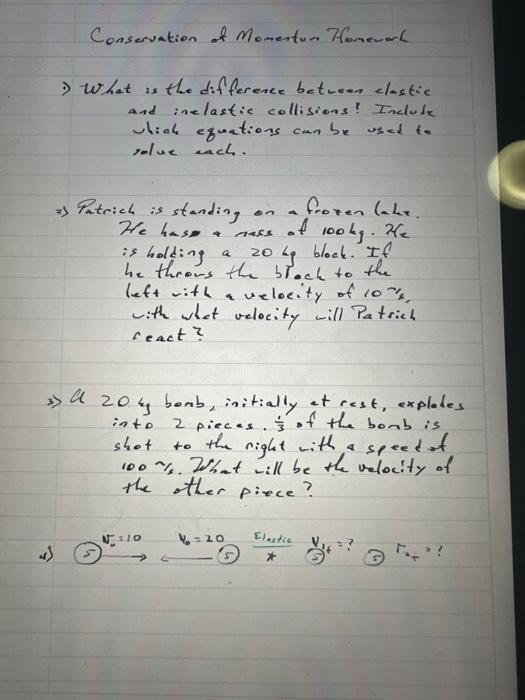 Conservation of Momentum Homework
1) What is the difference between elastic
and inelastic collisions? Include
which equations can be used to
solve each.
2) Patrick is standing on a frozen lake.
He has a mass of 100 kg. He
is holding a 20 kg block. If
he throws the block to the
left with a velocity of 10 m/s,
with what velocity will Patrick
react?
3) A 20 kg bomb, initially at rest, explodes
into 2 pieces. 1/3 of the bomb is
shot to the right with a speed of
100 m/s. What will be the velocity of
the other piece?
4) 5 V₀=10 V₀=20 5 Elastic * 5 V₁f=? 5 V₂f=?